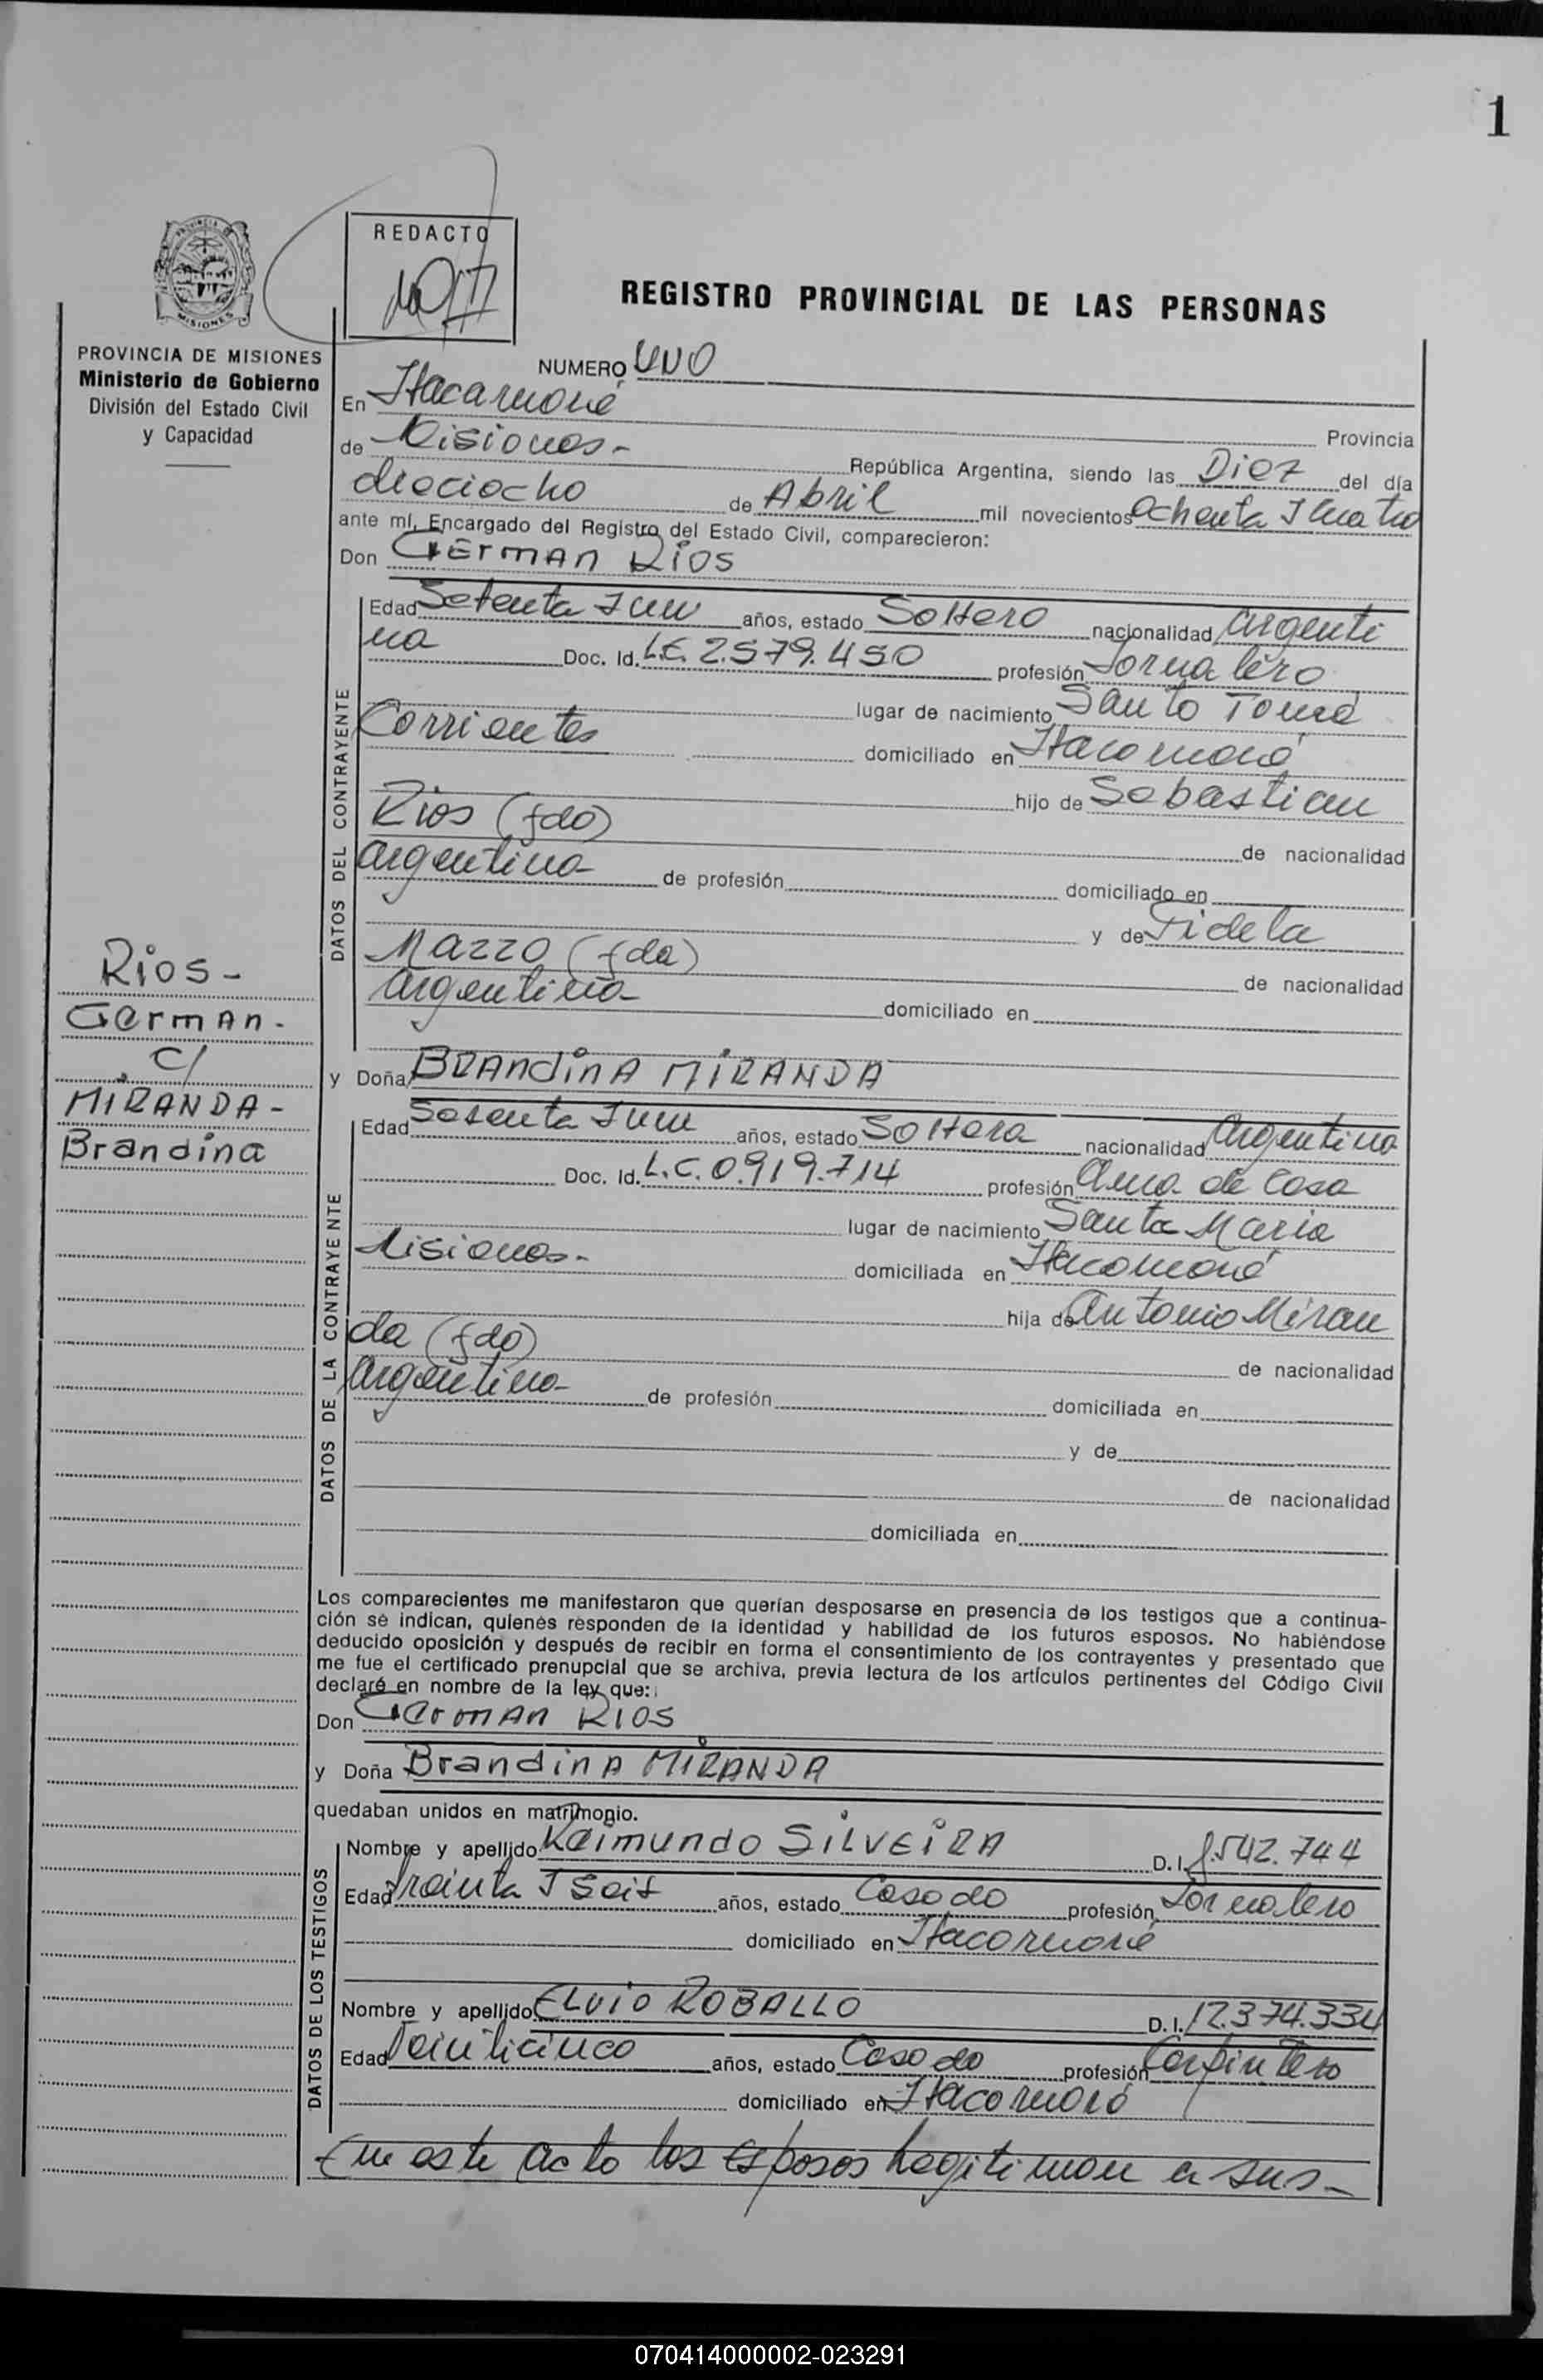 1
REDACTO
REGISTRO PROVINCIAL DE LAS PERSONAS
PROVINCIA DE MISIONES
Ministerio de Gobierno
División del Estado Civil
y Capacidad
NUMERO UNO
En Itacaruaré
Provincia
de Misiones -
República Argentina, siendo las Diez del día
dieciocho de Abril mil novecientos Ochenta I Cuatro
ante mí, Encargado del Registro del Estado Civil, comparecieron:
Don GErmAn Rios
DATOS DEL CONTRAYENTE
Edad Setenta I un años, estado Soltero nacionalidad Argenti
na Doc. Id. L.E. 2.579.450 profesión Jornalero
lugar de nacimiento Santo Tomé
Corrientes domiciliado en Itacaruaré
hijo de Sebastian
Rios (fdo) de nacionalidad
argentina de profesión domiciliado en
y de Fidela
Mazzo (fda) de nacionalidad
argentina domiciliado en
Rios -
German -
C/
MiRANDA -
Brandina
y Doña BRAndinA MiRANDA
DATOS DE LA CONTRAYENTE
Edad Sesenta I un años, estado Soltera nacionalidad Argentina
Doc. Id. L.C. 0.919.714 profesión ama de Casa
lugar de nacimiento Santa Maria
Misiones - domiciliada en Itacaruaré
hija de Antonio Miran
da (fdo) de nacionalidad
Argentina de profesión domiciliada en
y de
de nacionalidad
domiciliada en
Los comparecientes me manifestaron que querían desposarse en presencia de los testigos que a continua-
ción se indican, quienes responden de la identidad y habilidad de los futuros esposos. No habiéndose
deducido oposición y después de recibir en forma el consentimiento de los contrayentes y presentado que
me fue el certificado prenupcial que se archiva, previa lectura de los artículos pertinentes del Código Civil
declaré en nombre de la ley que:
Don GermAn RIOS
y Doña BrandinA MiRANDA
quedaban unidos en matrimonio.
DATOS DE LOS TESTIGOS
Nombre y apellido Raimundo SiLVEiRA D.I. 8.542.744
Edad Treinta I Seis años, estado Casado profesión Jornalero
domiciliado en Itacaruaré
Nombre y apellido ELVIO ROBALLO D.I. 12.374.334
Edad Veinticinco años, estado Casado profesión Carpintero
domiciliado en Itacaruaré
En este acto los esposos Legitiman a sus -
070414000002-023291